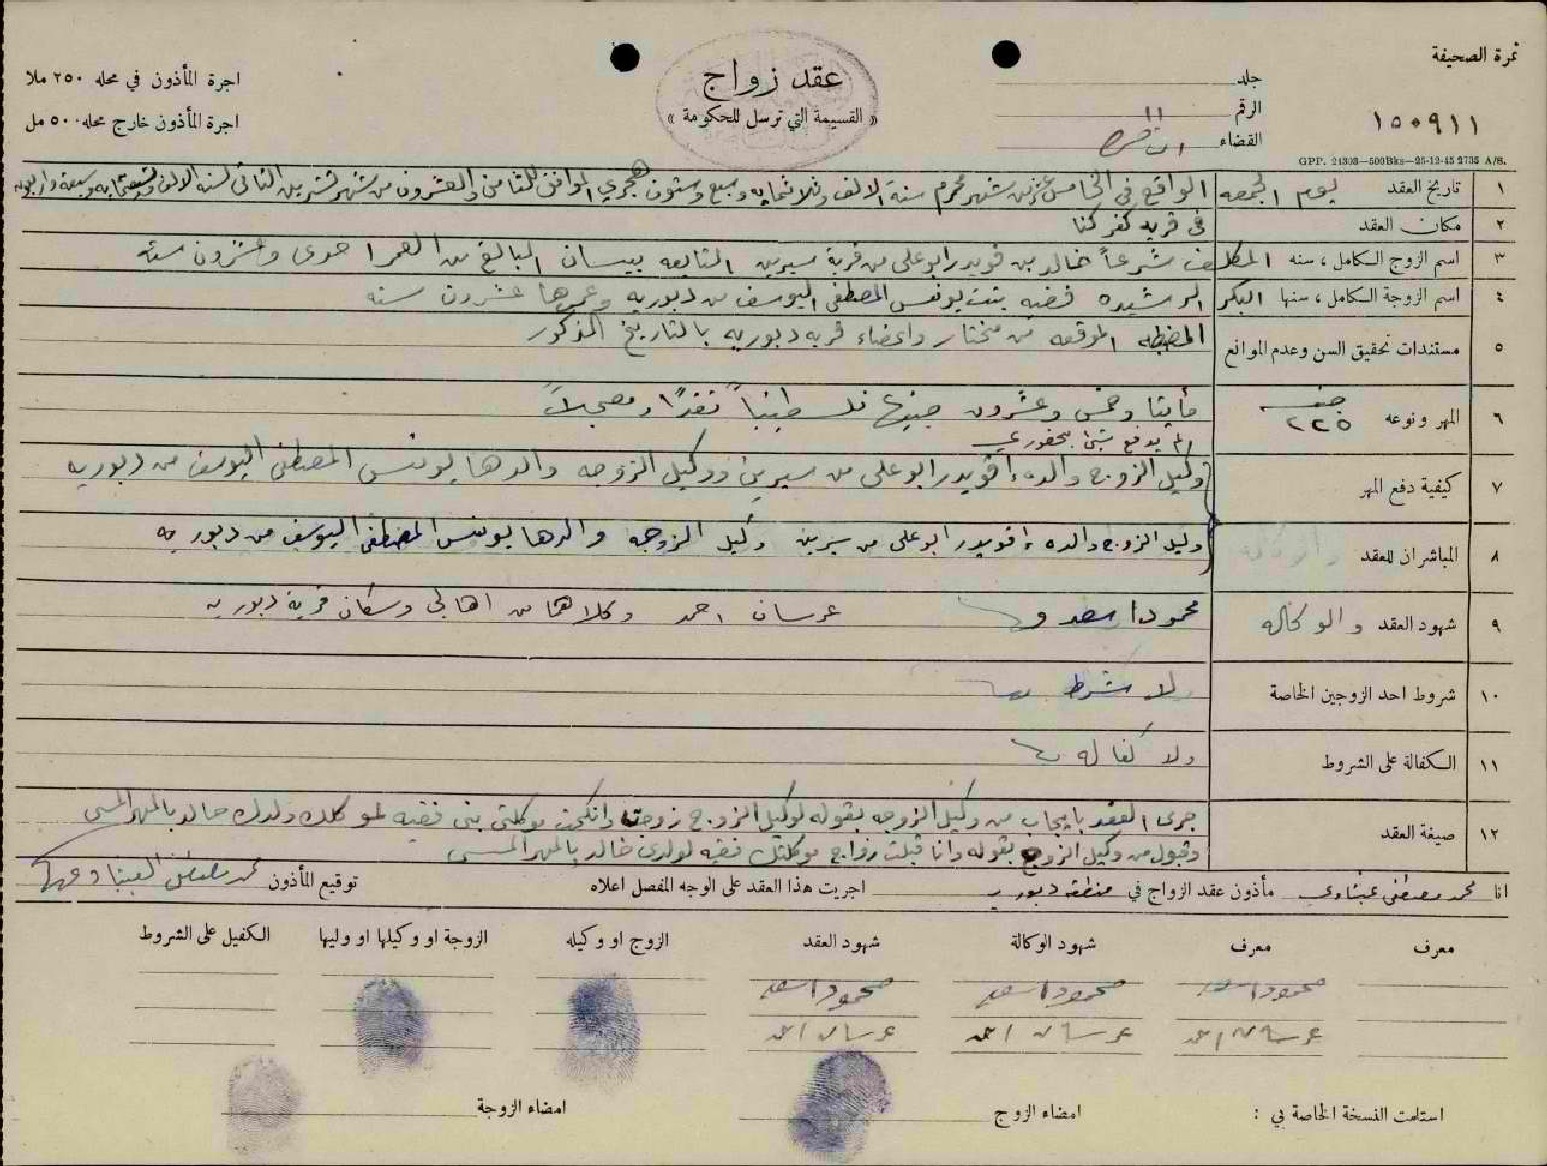 نمرة الصحيفة
١٥٠٩١١
جلد
الرقم ١١
القضاء الناصرة
عقد زواج
« القسيمة التي ترسل للحكومة »
اجرة المأذون في محله ٢٥٠ ملا
اجرة المأذون خارج محله ٥٠٠ مل
GPP. 21303—500Bks—25-12-45 2735 A/S.
١ تاريخ العقد يوم الجمعه الواقع في الخامس عشر من شهر محرم سنة الالف وثلاثمايه وسبع وستون هجري الموافق للثامن والعشرون من شهر تشرين الثاني لسنة الالف وتسعمايه وسبعة واربعون
٢ مكان العقد في قرية كفر كنا
٣ اسم الزوج الكامل ، سنه المكلف شرعاً خالد بن قويدر ابو علي من قرية سيرين التابعه بيسان البالغ من العمر احدى وعشرون سنه
٤ اسم الزوجة الكامل ، سنها البكر الرشيده فضيه بنت يونس المصطفى اليوسف من دبوريه وعمرها عشرون سنه
٥ مستندات تحقيق السن وعدم الموانع المضبطه الموقعه من مختار واعضاء قرية دبوريه بالتاريخ المذكور
٦ المهر ونوعه جنيه ٢٢٥ مأيتا وخمس وعشرون جنيها فلسطينياً نقداً ومعجلاً
لم يدفع شئ بحضوري
٧ كيفية دفع المهر وكيل الزوج والده قويدر ابو علي من سيرين ووكيل الزوجه والدها يونس المصطفى اليوسف من دبوريه
٨ المباشران للعقد وكيل الزوج والده قويدر ابو علي من سيرين وكيل الزوجه والدها يونس المصطفى اليوسف من دبوريه
٩ شهود العقد والوكاله محمود اسعد و عرسان احمد وكلاهما من اهالي وسكان قرية دبوريه
١٠ شروط احد الزوجين الخاصة لا شرط
١١ الكفالة على الشروط ولا كفاله
١٢ صيغة العقد جرى العقد بايجاب من وكيل الزوجه بقوله لوكيل الزوج زوجت وانكحت موكلتي بنتي فضيه لموكلك ولدك خالد بالمهر المسمى
وقبول من وكيل الزوج بقوله وانا قبلت زواج موكلتك فضيه لولدي خالد بالمهر المسمى
انا محمد مصطفى مأذون عقد الزواج في منطقة دبوريه اجريت هذا العقد على الوجه المفصل اعلاه توقيع المأذون محمد مصطفى
معرف معرف شهود الوكالة شهود العقد الزوج او وكيله الزوجة او وكيلها او وليها الكفيل على الشروط
محمود اسعد محمود اسعد محمود اسعد
عرسان احمد عرسان احمد عرسان احمد
استلمت النسخة الخاصة بي : امضاء الزوج امضاء الزوجة